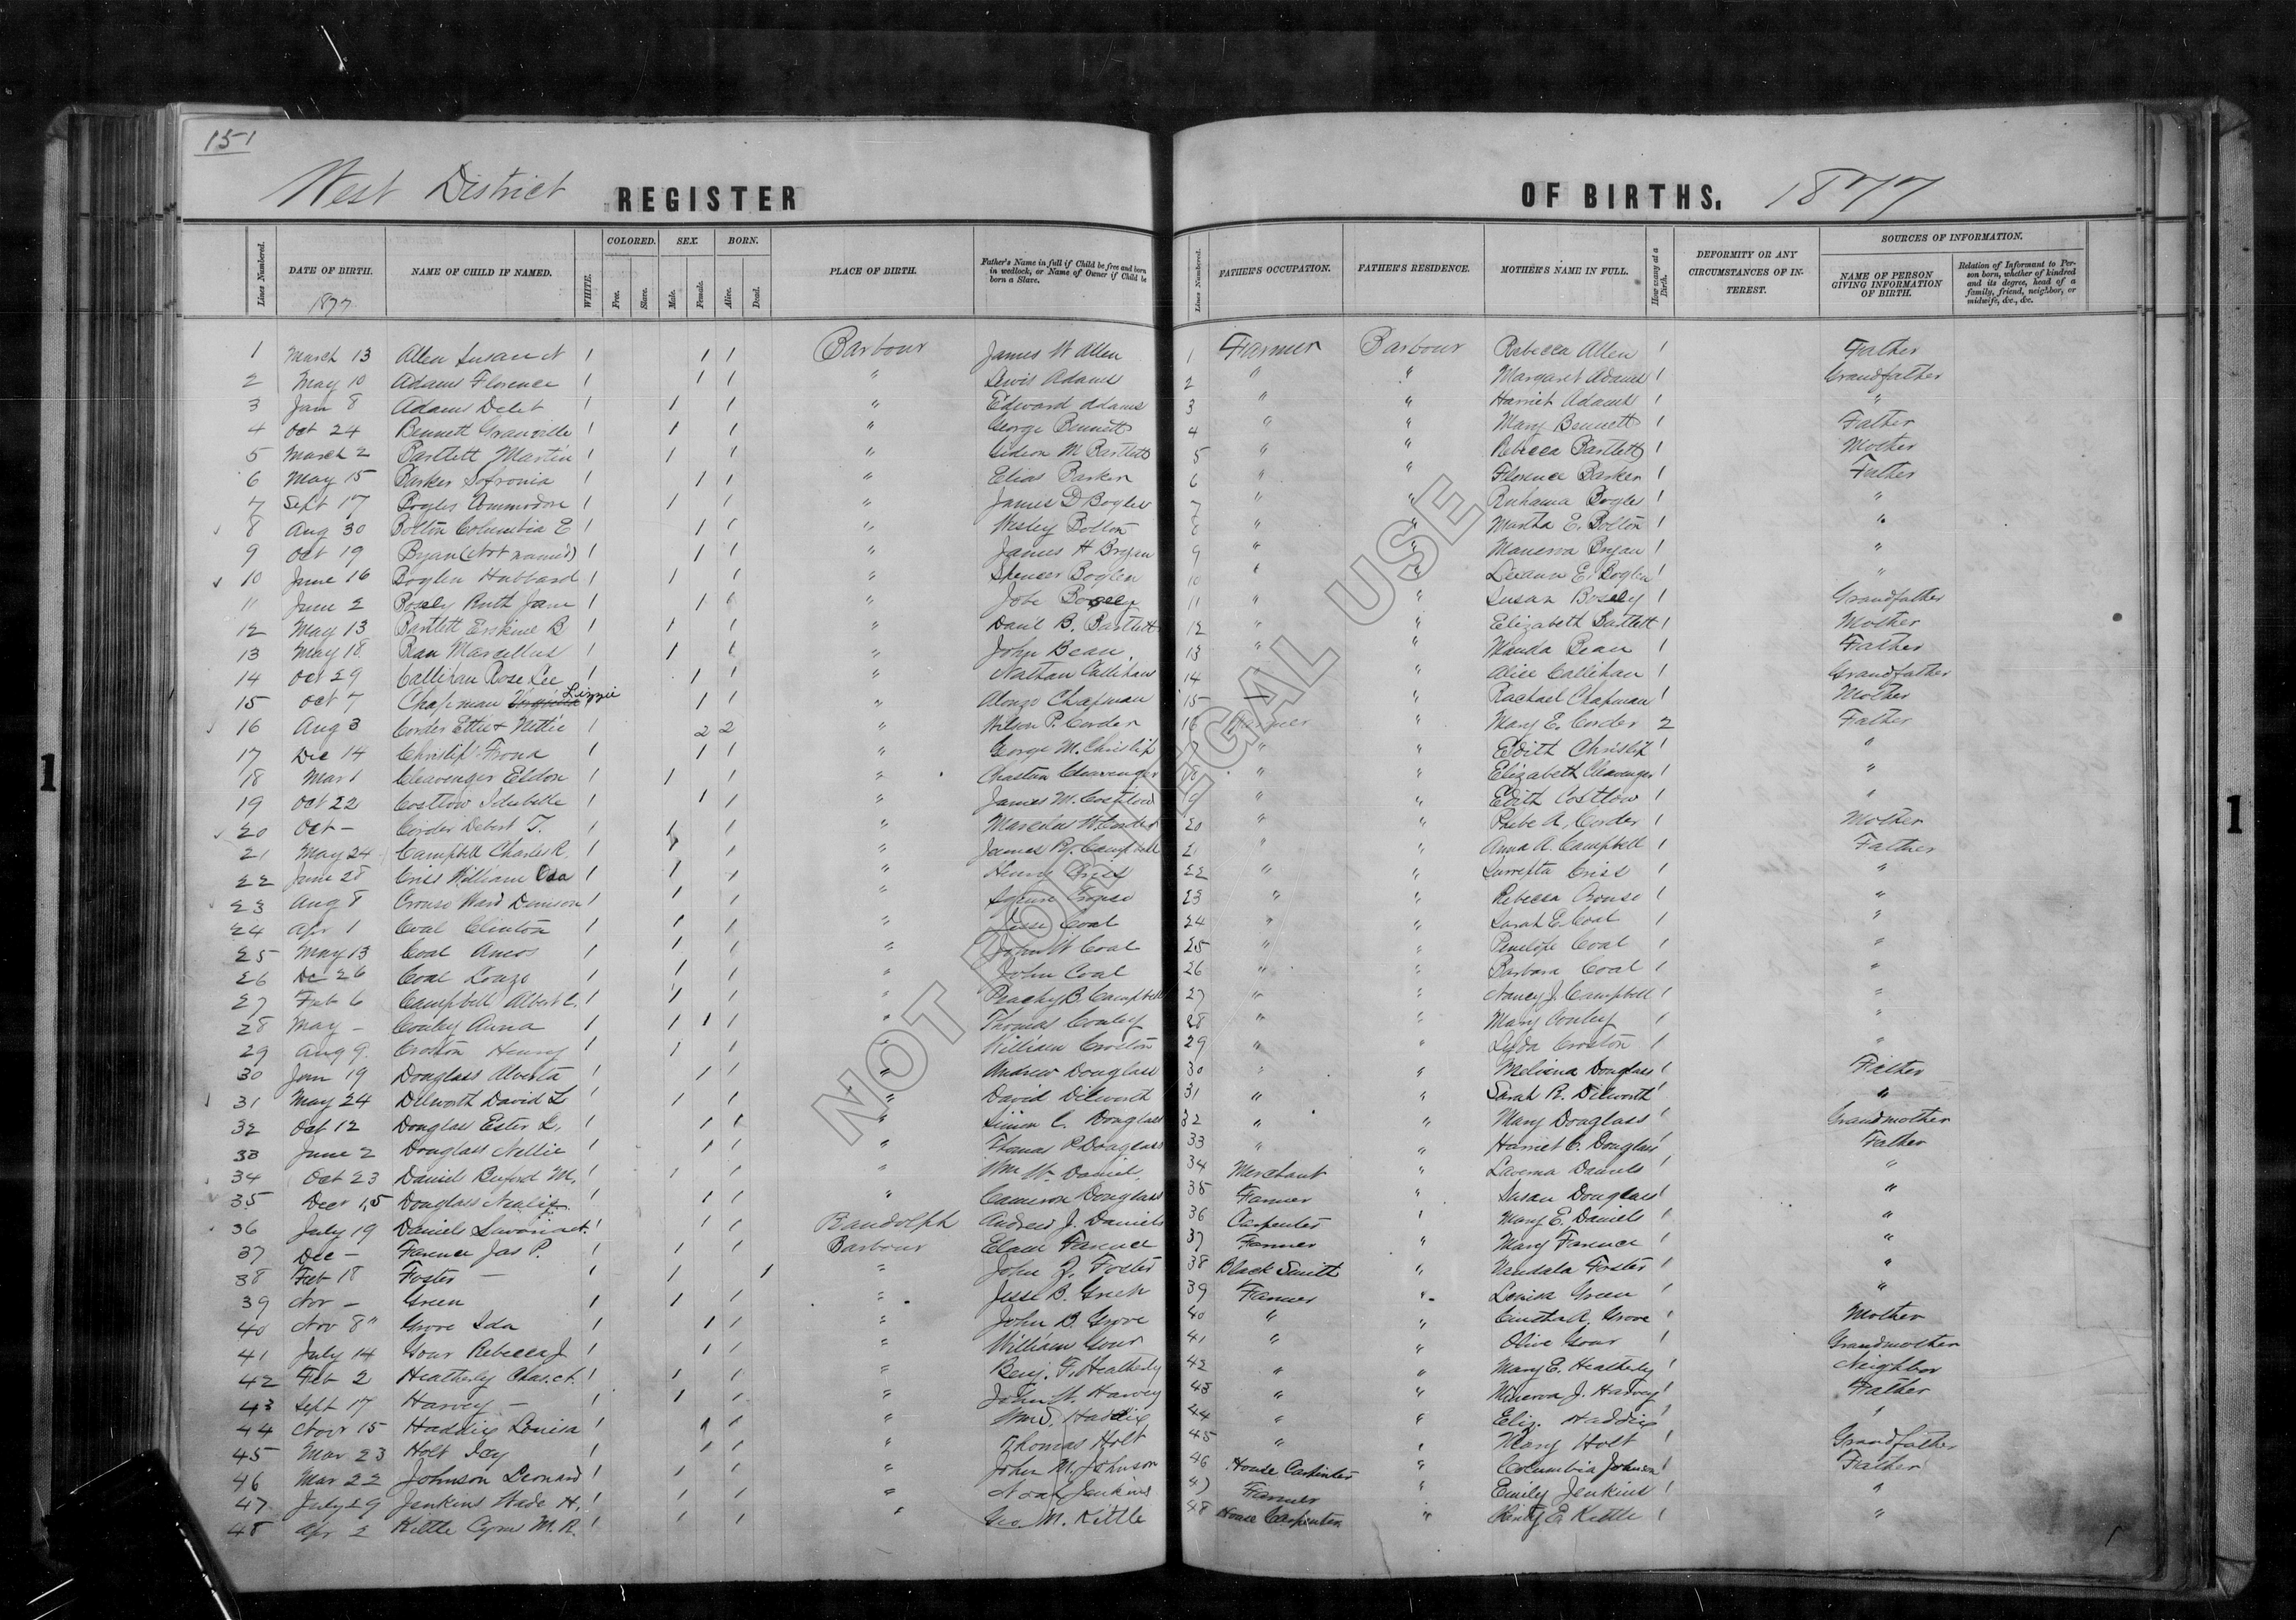 151
West District REGISTER OF BIRTHS. 1877
Lines Numbered. DATE OF BIRTH. 1877 NAME OF CHILD IF NAMED. WHITE. COLORED. Free. Slave. SEX. Male. Female. BORN. Alive. Dead. PLACE OF BIRTH. Father's Name in full if Child be free and born in wedlock, or Name of Owner if Child be born a Slave. Lines Numbered. FATHER'S OCCUPATION. FATHER'S RESIDENCE. MOTHER'S NAME IN FULL. How many at a Birth. DEFORMITY OR ANY CIRCUMSTANCES OF INTEREST. SOURCES OF INFORMATION. NAME OF PERSON GIVING INFORMATION OF BIRTH. Relation of Informant to Person born, whether of kindred and its degree, head of a family, friend, neighbor, or midwife, &c., &c.
1 March 13 Allen Susan N 1 1 1 Barbour James W Allen 1 Farmer Barbour Rebecca Allen 1 Father
2 May 10 Adams Florence 1 1 1 " Lewis Adams 2 " " Margaret Adams 1 Grandfather
3 Jan 8 Adams Delet 1 1 1 " Edward Adams 3 " " Harriet Adams 1 "
4 Oct 24 Bennett Granville 1 1 1 " George Bennett 4 " " Mary Bennett 1 Father
5 March 2 Bartlett Martin 1 1 1 " Gideon M Bartlett 5 " " Rebecca Bartlett 1 Mother
6 May 15 Barker Sofronia 1 1 1 " Elias Barker 6 " " Florence Barker 1 Father
7 Sept 17 Bogles Commodore 1 1 1 " James D Bogles 7 " " Ruhama Bogles 1 "
8 Aug 30 Bolton Columbia E 1 1 1 " Wesley Bolton 8 " " Martha E. Bolton 1 "
9 Oct 19 Bryan (Not named) 1 1 1 " James H Bryan 9 " " Manerva Bryan 1 "
10 June 16 Boglen Hubbard 1 1 1 " Spencer Boglen 10 " " E. Boglen 1 "
11 June 2 Bosely Ruth Jane 1 1 1 " Jobe Bosely 11 " " Susan Bosely 1 Grandfather
12 May 13 Bartlett Erskine B 1 1 1 " Danl B. Bartlett 12 " " Elizabeth Bartlett 1 Mother
13 May 18 Bean Marcellus 1 1 1 " John Bean 13 " " Manda Bean 1 Father
14 Oct 29 Callihan Rose Lee 1 1 1 " Nathan Callihan 14 " Alice Callihan 1 Grandfather
15 Oct 7 Chapman Virginia Lizzie 1 1 " Alonzo Chapman 15 — " Rachael Chapman 1 Mother
16 Aug 3 Corder Ettie & Nettie 1 2 2 " Wilson P. Corder 16 Farmer " Mary E. Corder 2 Father
17 Dec 14 Christip Frona 1 1 1 " George M. Christip " " Edith Christip 1 "
18 Mar 1 Cleavenger Eldon 1 1 1 " Chastin Cleavenger 18 " " Elizabeth Cleavenger 1 "
19 Oct 22 Costlow Idabelle 1 1 1 " James M. Costlow 19 " " Edith Costlow 1 "
20 Oct — Corder Debert T. 1 1 1 " W Corder 20 " " Phebe A. Corder 1 Mother
21 May 24 Campbell Charles R. 1 1 1 " James Campbell 21 " Anna A. Campbell 1 Father
22 June 28 Criss William Oda 1 1 1 " Henry Criss 22 " " Surrepta Criss 1 "
23 Aug 8 Crouso Ward Denison 1 1 1 " Squire Crouso 23 " " Rebecca Crouse 1 "
24 Apr 1 Coal Clinton 1 1 1 " Jesse Coal 24 " " Sarah E. Coal 1 "
25 May 13 Coal Amos 1 1 1 " John W Coal 25 " " Penelope Coal 1 "
26 De 26 Coal Lonzo 1 1 1 " John Coal 26 " " Barbara Coal 1 "
27 Feb 6 Campbell Albert C. 1 1 1 " Peachy B. Campbell 27 " " Nancy J. Campbell 1 "
28 May — Conley Anna 1 1 1 1 " Thomas Conley 28 " " Mary Conley 1 "
29 Aug 9 Croston Henry 1 1 1 " William Croston 29 " " Lyda Croston 1 "
30 Jan 19 Douglass Alverta 1 1 1 " Andrew Douglass 30 " " Melvina Douglass 1 Father
31 May 24 Dilworth David L 1 1 1 " David Dilworth 31 " " Sarah R. Dilworth 1 "
32 Oct 12 Douglass Ester L. 1 1 1 " Simon C. Douglass 32 " " Mary Douglass 1 Grandmother
33 June 2 Douglass Nellie 1 1 1 " Thomas P. Douglass 33 " " Harriet C. Douglass 1 Father
34 Oct 23 Daniels Buford M. 1 1 1 " Wm W. Daniels 34 Merchant " Laverna Daniels 1 "
35 Decr 15 Douglass 1 1 1 " Cameron Douglass 35 Farmer " Susan Douglass 1 "
36 July 19 Daniels 1 1 1 Randolph Andrew J. Daniels 36 Carpenter " Mary E. Daniels 1 "
37 Dec — Farence Jas P. 1 1 1 Barbour Elam Farence 37 Farmer " Mary Farence 1 "
38 Feb 18 Foster — 1 1 1 " John Z. Foster 38 Black Smith " Vandala Foster 1 "
39 Nov — Green 1 1 1 " Jesse B. Green 39 Farmer " Louisa Green 1 "
40 Nov 8" Grove Ida 1 1 1 " John B. Grove 40 " " Cintha A. Grove 1 Mother
41 July 14 Gour Rebecca J 1 1 1 " William Gour 41 " " Olive Gour 1 Grandmother
42 Feb 2 Heatherly Chas. N. 1 1 1 " Benj. F. Heatherly 42 " " Mary E. Heatherly 1 Neighbor
43 Sept 17 Harvey — 1 1 1 " John W. Harvey 43 " " Minerva J. Harvey 1 Father
44 Novr 15 Haddix Louisa 1 1 1 " Wm S. Haddix 44 " " Eliz. Haddix 1 "
45 Mar 23 Holt Icy 1 1 1 " Thomas Holt 45 " " Mary Holt 1 Grandfather
46 Mar 22 Johnson Leonard 1 1 1 " John M. Johnson 46 House Carpenter " Columbia Johnson 1 Father
47 July 29 Jenkins Wade H. 1 1 1 " Noah Jenkins 47 Farmer " Emily Jenkins 1 "
48 Apr 2 Kittle Cyrus M. R. 1 1 1 " Geo. M. Kittle 48 House Carpenter " E. Kittle 1 "
NOT FOR LEGAL USE
1
1